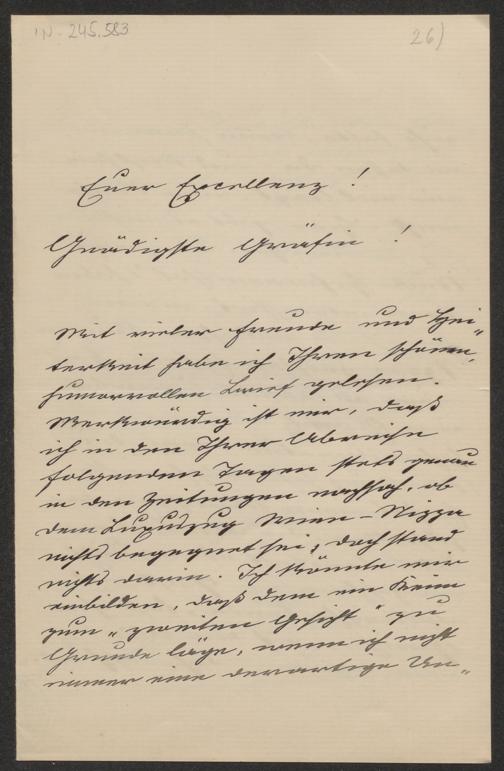 IN. 245.583
26)
Euer Excellenz!
Gnädigste Gräfin!
Mit vieler Freude und Hei-
terkeit habe ich Ihren schönen,
humorvollen Brief gelesen.
Merkwürdig ist mir, daß
ich in den Ihrer Abreise
folgenden Tagen stets genau
in den Zeitungen nachsah, ob
dem Luxuszug Wien – Nizza
nichts begegnet sei; doch stand
nichts darin. Ich könnte mir
einbilden, daß dem ein Keim
zum „zweiten Gesicht" zu
Grunde läge, wenn ich nicht
immer eine derartige Un-